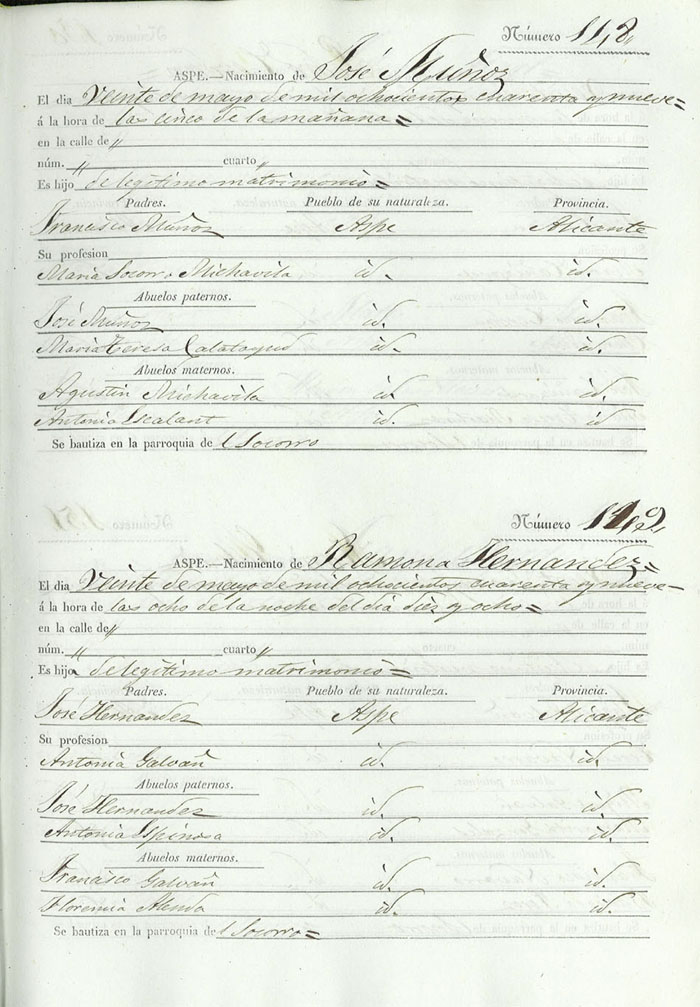 Número 148
ASPE.—Nacimiento de José Muñoz
El dia Veinte de mayo de mil ochocientos cuarenta y nueve=
á la hora de las cinco de la mañana=
en la calle de "
núm. " cuarto "
Es hijo de legítimo matrimonio=
Padres. Pueblo de su naturaleza. Provincia.
Francisco Muñoz Aspe Alicante
Su profesion
Maria Socorro Michavila id. id.
Abuelos paternos.
José Muñoz id. id.
Maria Teresa Calatayud id. id.
Abuelos maternos.
Agustin Michavila id. id.
Antonia Escalant id. id
Se bautiza en la parroquia del Socorro
Número 149
ASPE.—Nacimiento de Ramona Hernandez=
El dia Veinte de mayo de mil ochocientos cuarenta y nueve=
á la hora de las ocho de la noche del dia diez y ocho=
en la calle de "
núm. " cuarto "
Es hija de legítimo matrimonio=
Padres. Pueblo de su naturaleza. Provincia.
José Hernandez Aspe Alicante
Su profesion
Antonia Galvañ id. id.
Abuelos paternos.
José Hernandez id. id.
Antonia Espinosa id. id.
Abuelos maternos.
Francisco Galvañ id. id.
Florencia id. id.
Se bautiza en la parroquia del Socorro=